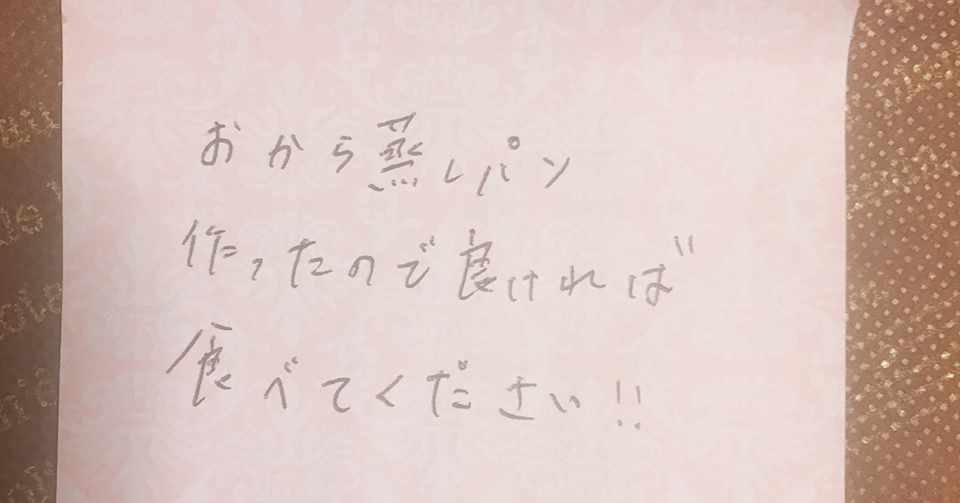 おから蒸しパン
作ったので良ければ
食べてください!!